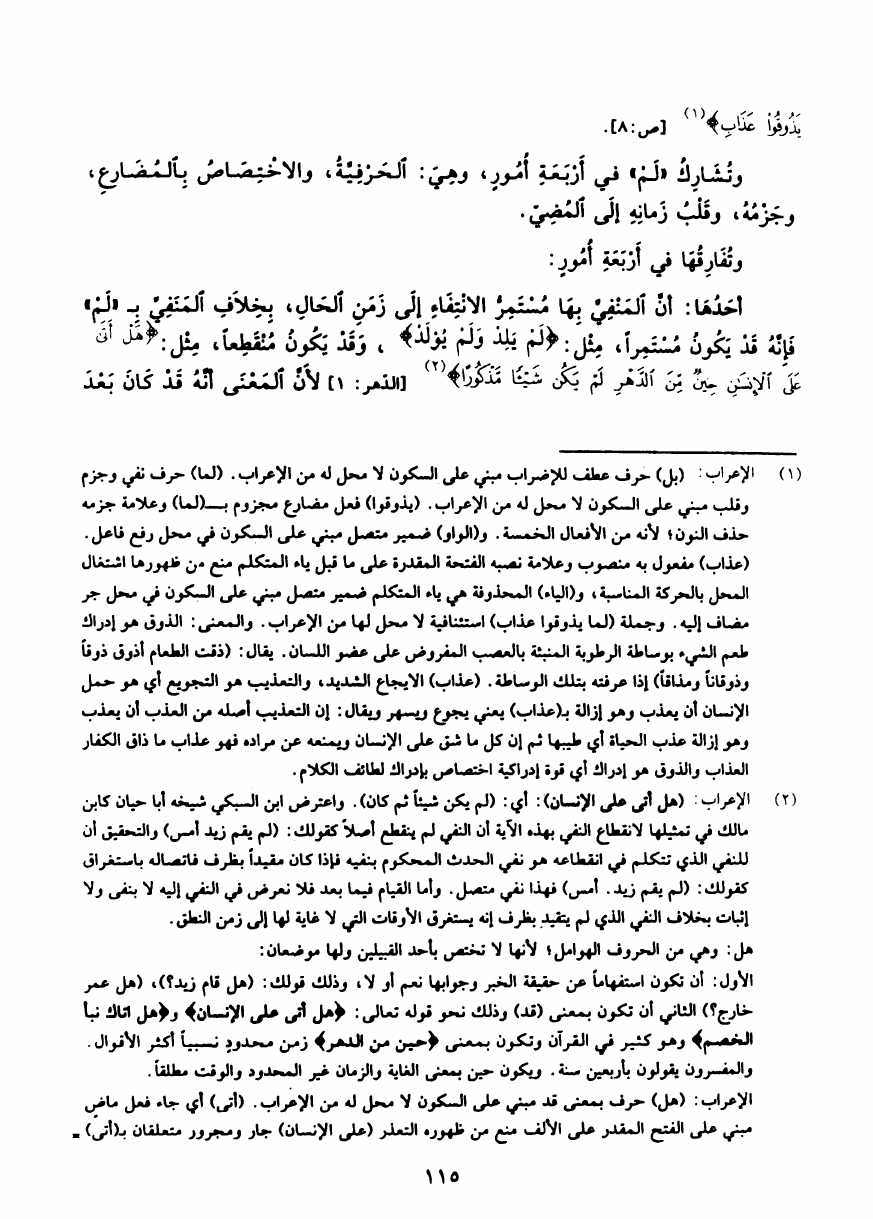 يَذُوقُوا۟ عَذَابِ﴾(١) [ص:٨].
وتُشَارِكُ «لَمْ» في أَرْبَعَةِ أُمُورٍ، وهِيَ: ٱلحَرْفِيَّةُ، والاخْتِصَاصُ بِٱلمُضَارِعِ،
وجَزْمُهُ، وقَلْبُ زَمانِهِ إلَى ٱلمُضِيّ.
وتُفَارِقُهَا في أَرْبَعَةِ أُمُورٍ:
أحَدُهَا: أنَّ ٱلمَنْفِيَّ بِهَا مُسْتَمِرُّ الانْتِفَاءِ إلَى زَمَنِ ٱلحَالِ، بِخِلاَفِ ٱلمَنَفِيِّ بِـ «لَمْ»
فَإنَّهُ قَدْ يَكُونُ مُسْتَمِراً، مِثْل: ﴿لَمْ يَلِدْ وَلَمْ يُولَدْ﴾ ، وَقَدْ يَكُونُ مُنْقَطِعاً، مِثْل: ﴿هَلْ أَتَىٰ
عَلَى ٱلْإِنسَٰنِ حِينٌ مِّنَ ٱلدَّهْرِ لَمْ يَكُن شَيْـًٔا مَّذْكُورًا﴾(٢) [الدهر: ١] لأَنَّ ٱلمَعْنَى أنَّهُ قَدْ كَانَ بَعْدَ
(١) الإعراب: (بل) حرف عطف للإضراب مبني على السكون لا محل له من الإعراب. (لما) حرف نفي وجزم
وقلب مبني على السكون لا محل له من الإعراب. (يذوقوا) فعل مضارع مجزوم بــ(لما) وعلامة جزمه
حذف النون؛ لأنه من الأفعال الخمسة. و(الواو) ضمير متصل مبني على السكون في محل رفع فاعل.
(عذاب) مفعول به منصوب وعلامة نصبه الفتحة المقدرة على ما قبل ياء المتكلم منع من ظهورها اشتغال
المحل بالحركة المناسبة، و(الياء) المحذوفة هي ياء المتكلم ضمير متصل مبني على السكون في محل جر
مضاف إليه. وجملة (لما يذوقوا عذاب) استئنافية لا محل لها من الإعراب. والمعنى: الذوق هو إدراك
طعم الشيء بوساطة الرطوبة المنبثة بالعصب المفروض على عضو اللسان. يقال: (ذقت الطعام أذوق ذوقاً
وذوقاناً ومذاقاً) إذا عرفته بتلك الوساطة. (عذاب) الايجاع الشديد، والتعذيب هو التجويع أي هو حمل
الإنسان أن يعذب وهو إزالة بـ(عذاب) يعني يجوع ويسهر ويقال: إن التعذيب أصله من العذب أن يعذب
وهو إزالة عذب الحياة أي طيبها ثم إن كل ما شق على الإنسان ويمنعه عن مراده فهو عذاب ما ذاق الكفار
العذاب والذوق هو إدراك أي قوة إدراكية اختصاص بإدراك لطائف الكلام.
(٢) الإعراب: (هل أتى على الإنسان): أي: (لم يكن شيئاً ثم كان). واعترض ابن السبكي شيخه أبا حيان كابن
مالك في تمثيلها لانقطاع النفي بهذه الآية أن النفي لم ينقطع أصلاً كقولك: (لم يقم زيد أمس) والتحقيق أن
للنفي الذي تتكلم في انقطاعه هو نفي الحدث المحكوم بنفيه فإذا كان مقيداً بظرف فاتصاله باستغراق
كقولك: (لم يقم زيد. أمس) فهذا نفي متصل. وأما القيام فيما بعد فلا نعرض في النفي إليه لا بنفى ولا
إثبات بخلاف النفي الذي لم يتقيد بظرف إنه يستغرق الأوقات التي لا غاية لها إلى زمن النطق.
هل: وهي من الحروف الهوامل؛ لأنها لا تختص بأحد القبيلين ولها موضعان:
الأول: أن تكون استفهاماً عن حقيقة الخبر وجوابها نعم أو لا، وذلك قولك: (هل قام زيد؟)، (هل عمر
خارج؟) الثاني أن تكون بمعنى (قد) وذلك نحو قوله تعالى: ﴿هل أتى على الإنسان﴾ و﴿هل اتاك نبأ
الخصم﴾ وهو كثير في القرآن وتكون بمعنى ﴿حين من الدهر﴾ زمن محدودٍ نسبياً أكثر الأقوال.
والمفسرون يقولون بأربعين سنة. ويكون حين بمعنى الغاية والزمان غير المحدود والوقت مطلقاً.
الإعراب: (هل) حرف بمعنى قد مبني على السكون لا محل له من الإعراب. (أتى) أي جاء فعل ماضٍ
مبني على الفتح المقدر على الألف منع من ظهوره التعذر (على الإنسان) جار ومجرور متعلقان بـ(أتى) =
١١٥